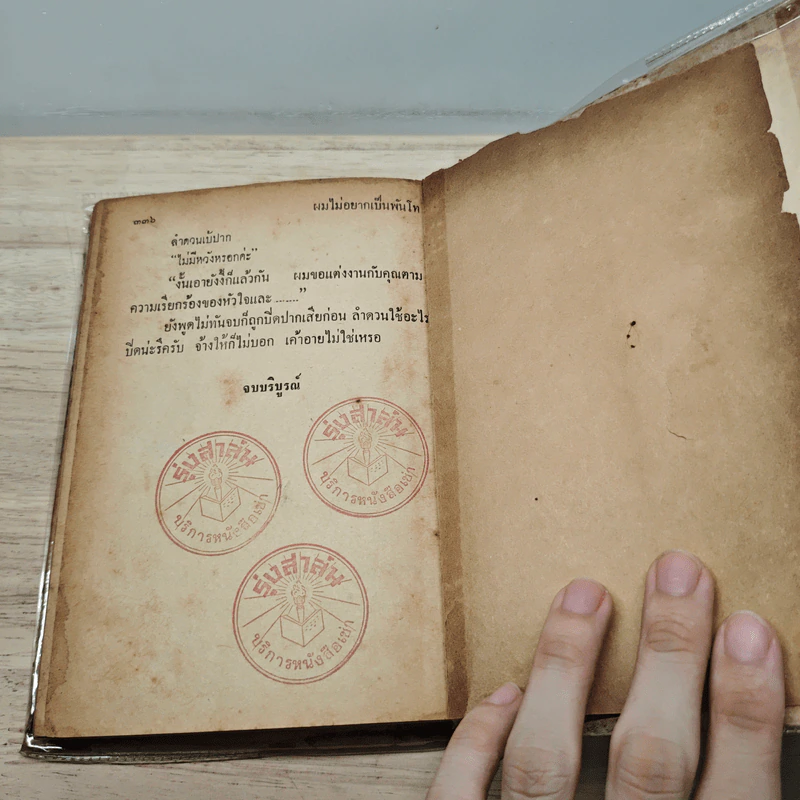 ๓๓๖
ผมไม่อยากเป็นพันโท
ลำดวนเบ้ปาก
“ไม่มีหวังหรอกค่ะ”
“งั้นเอายังงี้ก็แล้วกัน ผมขอแต่งงานกับคุณตาม
ความเรียกร้องของหัวใจและ .......”
ยังพูดไม่ทันจบก็ถูกปิดปากเสียก่อน ลำดวนใช้อะไร
ปิดน่ะรึครับ จ้างให้ก็ไม่บอก เค้าอายไม่ใช่เหรอ
จบบริบูรณ์
รุ่งสาส์น
บริการหนังสือเช่า
รุ่งสาส์น
บริการหนังสือเช่า
รุ่งสาส์น
บริการหนังสือเช่า